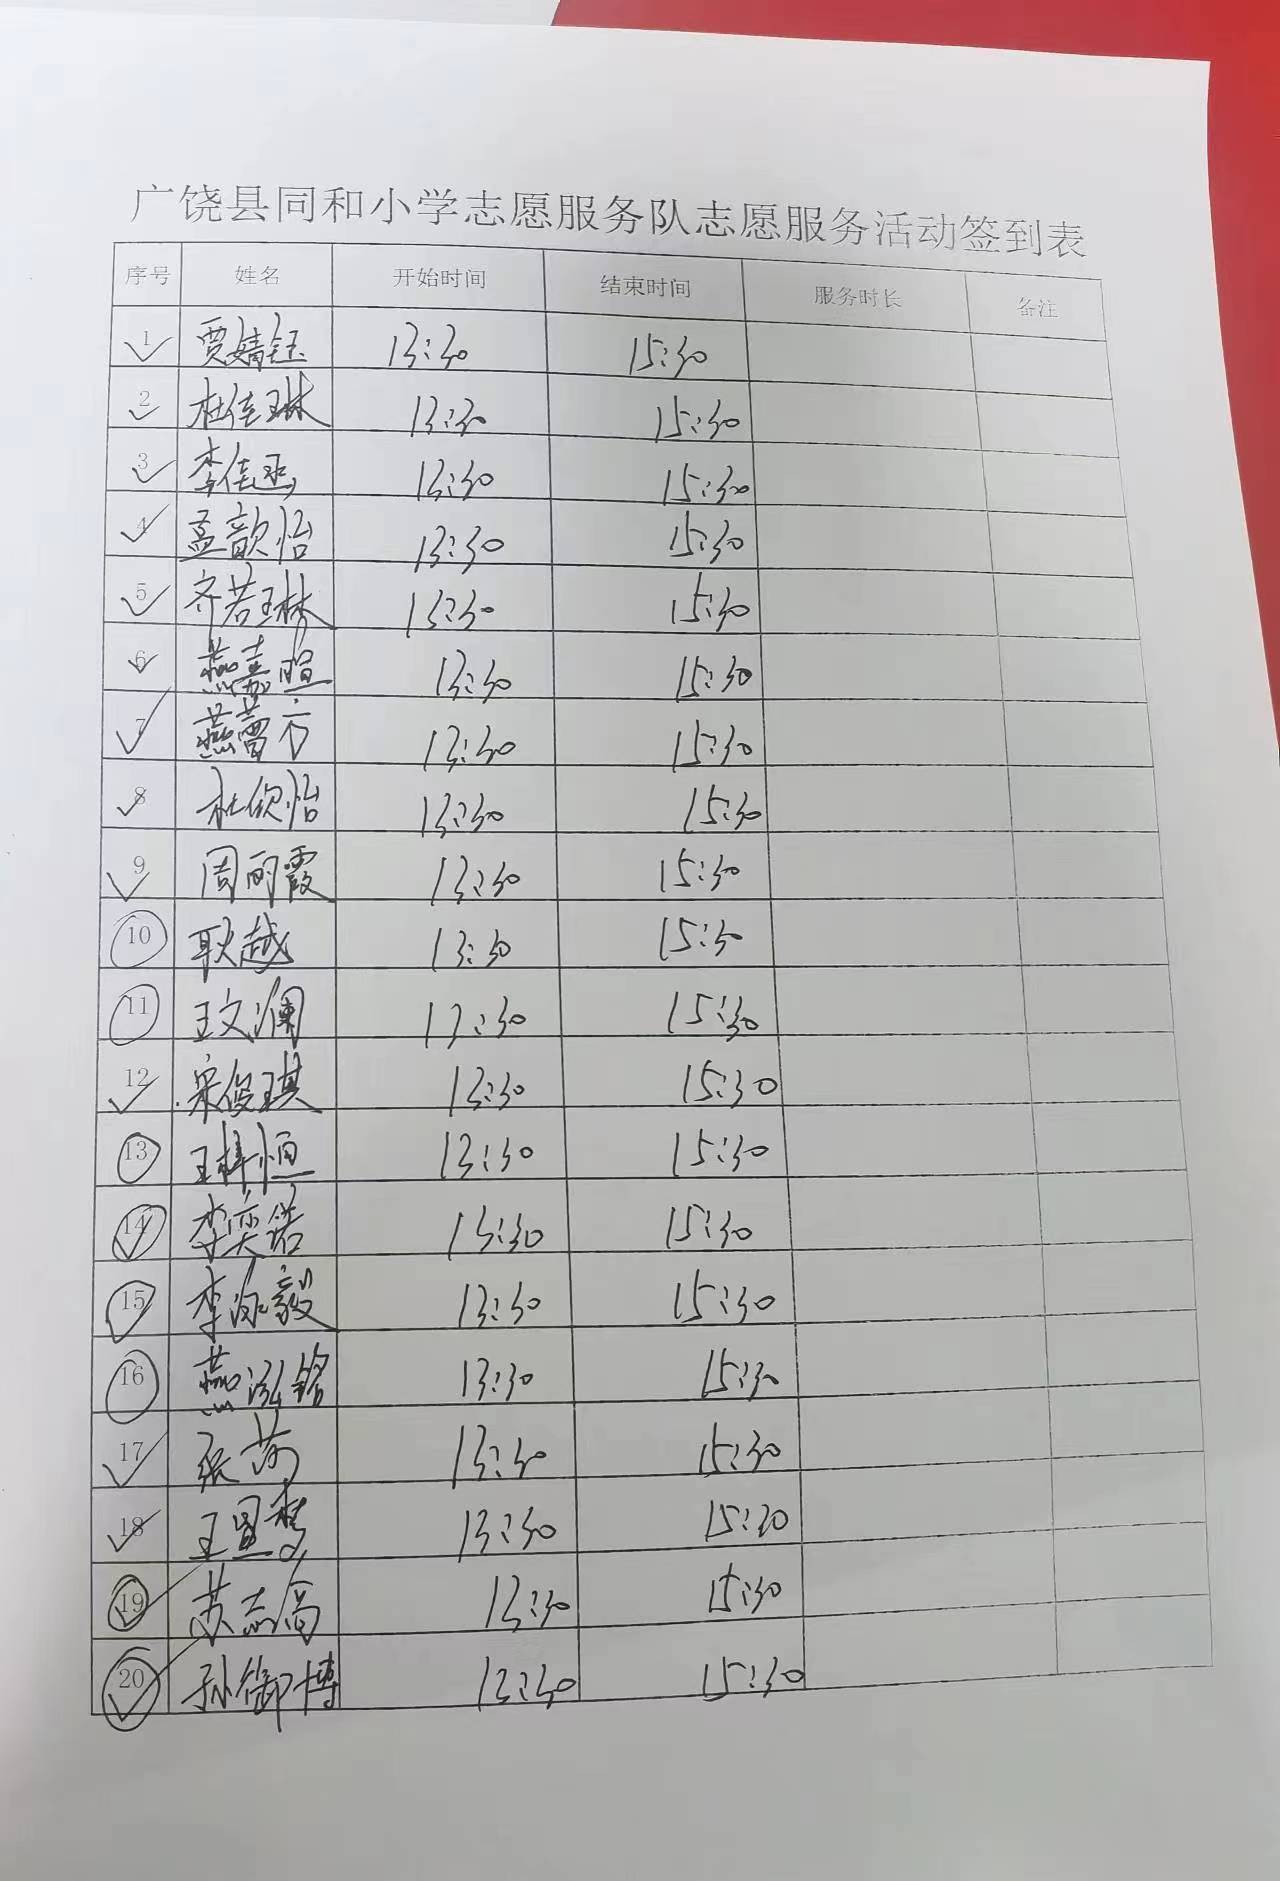 广饶县同和小学志愿服务队志愿服务活动签到表
序号 姓名 开始时间 结束时间 服务时长 备注
1 贾婧钰 13:30 15:30
2 杜佳琳 13:30 15:30
3 李佳 13:30 15:30
4 孟歆怡 13:30 15:30
5 齐若琳 13:30 15:30
6 燕嘉暄 13:30 15:30
7 燕 13:30 15:30
8 杜欣怡 13:30 15:30
9 周雨霞 13:30 15:30
10 耿越 13:30 15:30
11 王文澜 13:30 15:30
12 宋俊琪 13:30 15:30
13 王梓恒 13:30 15:30
14 李奕诺 13:30 15:30
15 李泳毅 13:30 15:30
16 燕泓铭 13:30 15:30
17 张 13:30 15:30
18 王 13:30 15:30
19 苏志高 13:30 15:30
20 孙御博 13:30 15:30